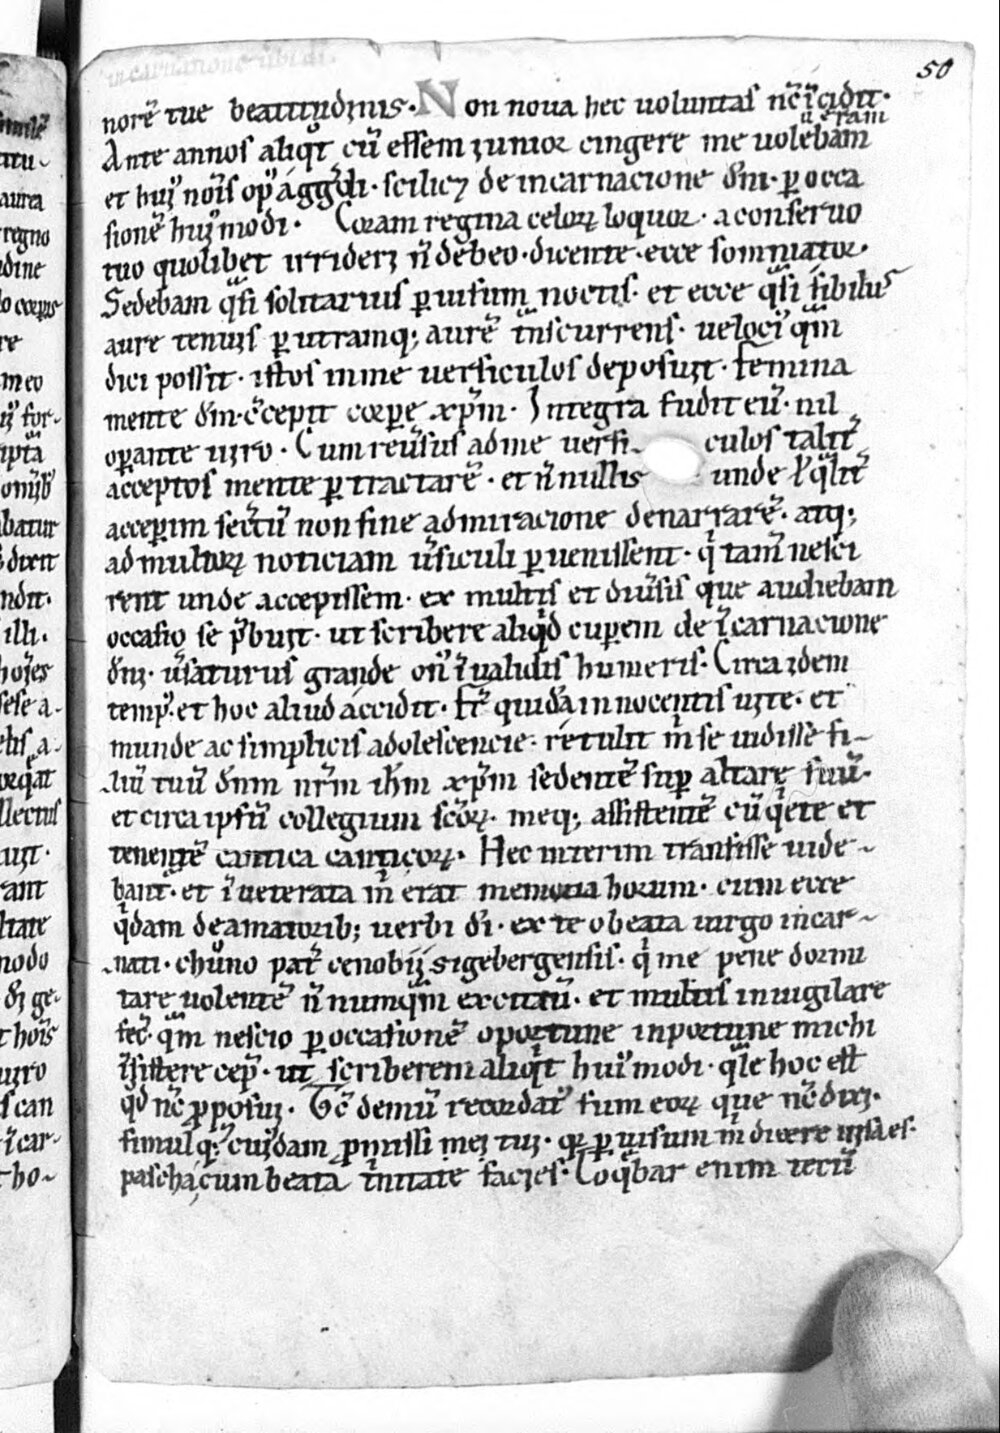 50
norē tue beatitudinis. Non noua hec uoluntas nc̄ īcidit.
ueram
Ante annos aliqt cū essem iunior cingere me uolebam
et hui nois op aggdi. scilicȝ de incarnacione dni. p occa
sionē hui modi. Coram regina celoꝝ loquor. a conseruo
tuo quolibet irrideri n̄ debeo. dicente. ecce somniator.
Sedebam qsi solitarius p uisum noctis. et ecce qsi sibilus
aure tenuis p utramq; aurē tnscurrens. ueloci qm
dici possit. istos in me uersiculos deposuit. femina
mente dm. c̄cepit corpe xpm. Integra fudit eū. nil
opante uiro. Cum reūsus ad me uersi- culos talit
acceptos mente ptractarē. et n̄ nullis unde ł qlit
acceperim sectū non sine admiracione denarrarē. atq;
ad multoꝝ noticiam ūsiculi puenissent. q tam nesci
rent unde accepissem. ex multis et diūsis que audiebam
occasio se pbuit. ut scribere aliqd cuperem de īcarnacione
dni. ūsaturus grande on īualidis humeris. Circa idem
temp. et hoc aliud accidit. Fr quidā innocentis uite. et
munde ac simplicis adolescencie. retulit m se uidisse fi-
liū tuū dnm nrm ihm xpm sedentē sup altare suū.
et circa ipsū collegium scoꝝ. meq; assistentē cū qete et
tenentē cantica canticoꝝ. Hec interim transisse uide-
bant. et īueterata m erat memoria horum. cum ecce
qdam de amatorib; uerbi di. ex te o beata uirgo incar-
nati. chuno pat cenobij sigebergensis. q me pene dormi
tare uolentē n̄ numqm excitaū. et multis inuigilare
fec. qm nescio p occasionē oportune inportune michi
īsistere cep. ut scriberem aliqt hui modi. qle hoc est
qd nc pposui. Tc demū recordat sum eoꝝ que nc dixi.
simulq; cuidam pmissi mei tui. q p uisum m dicere uisa es.
pascha cum beata tnitate facies. Loqbar enim tecū